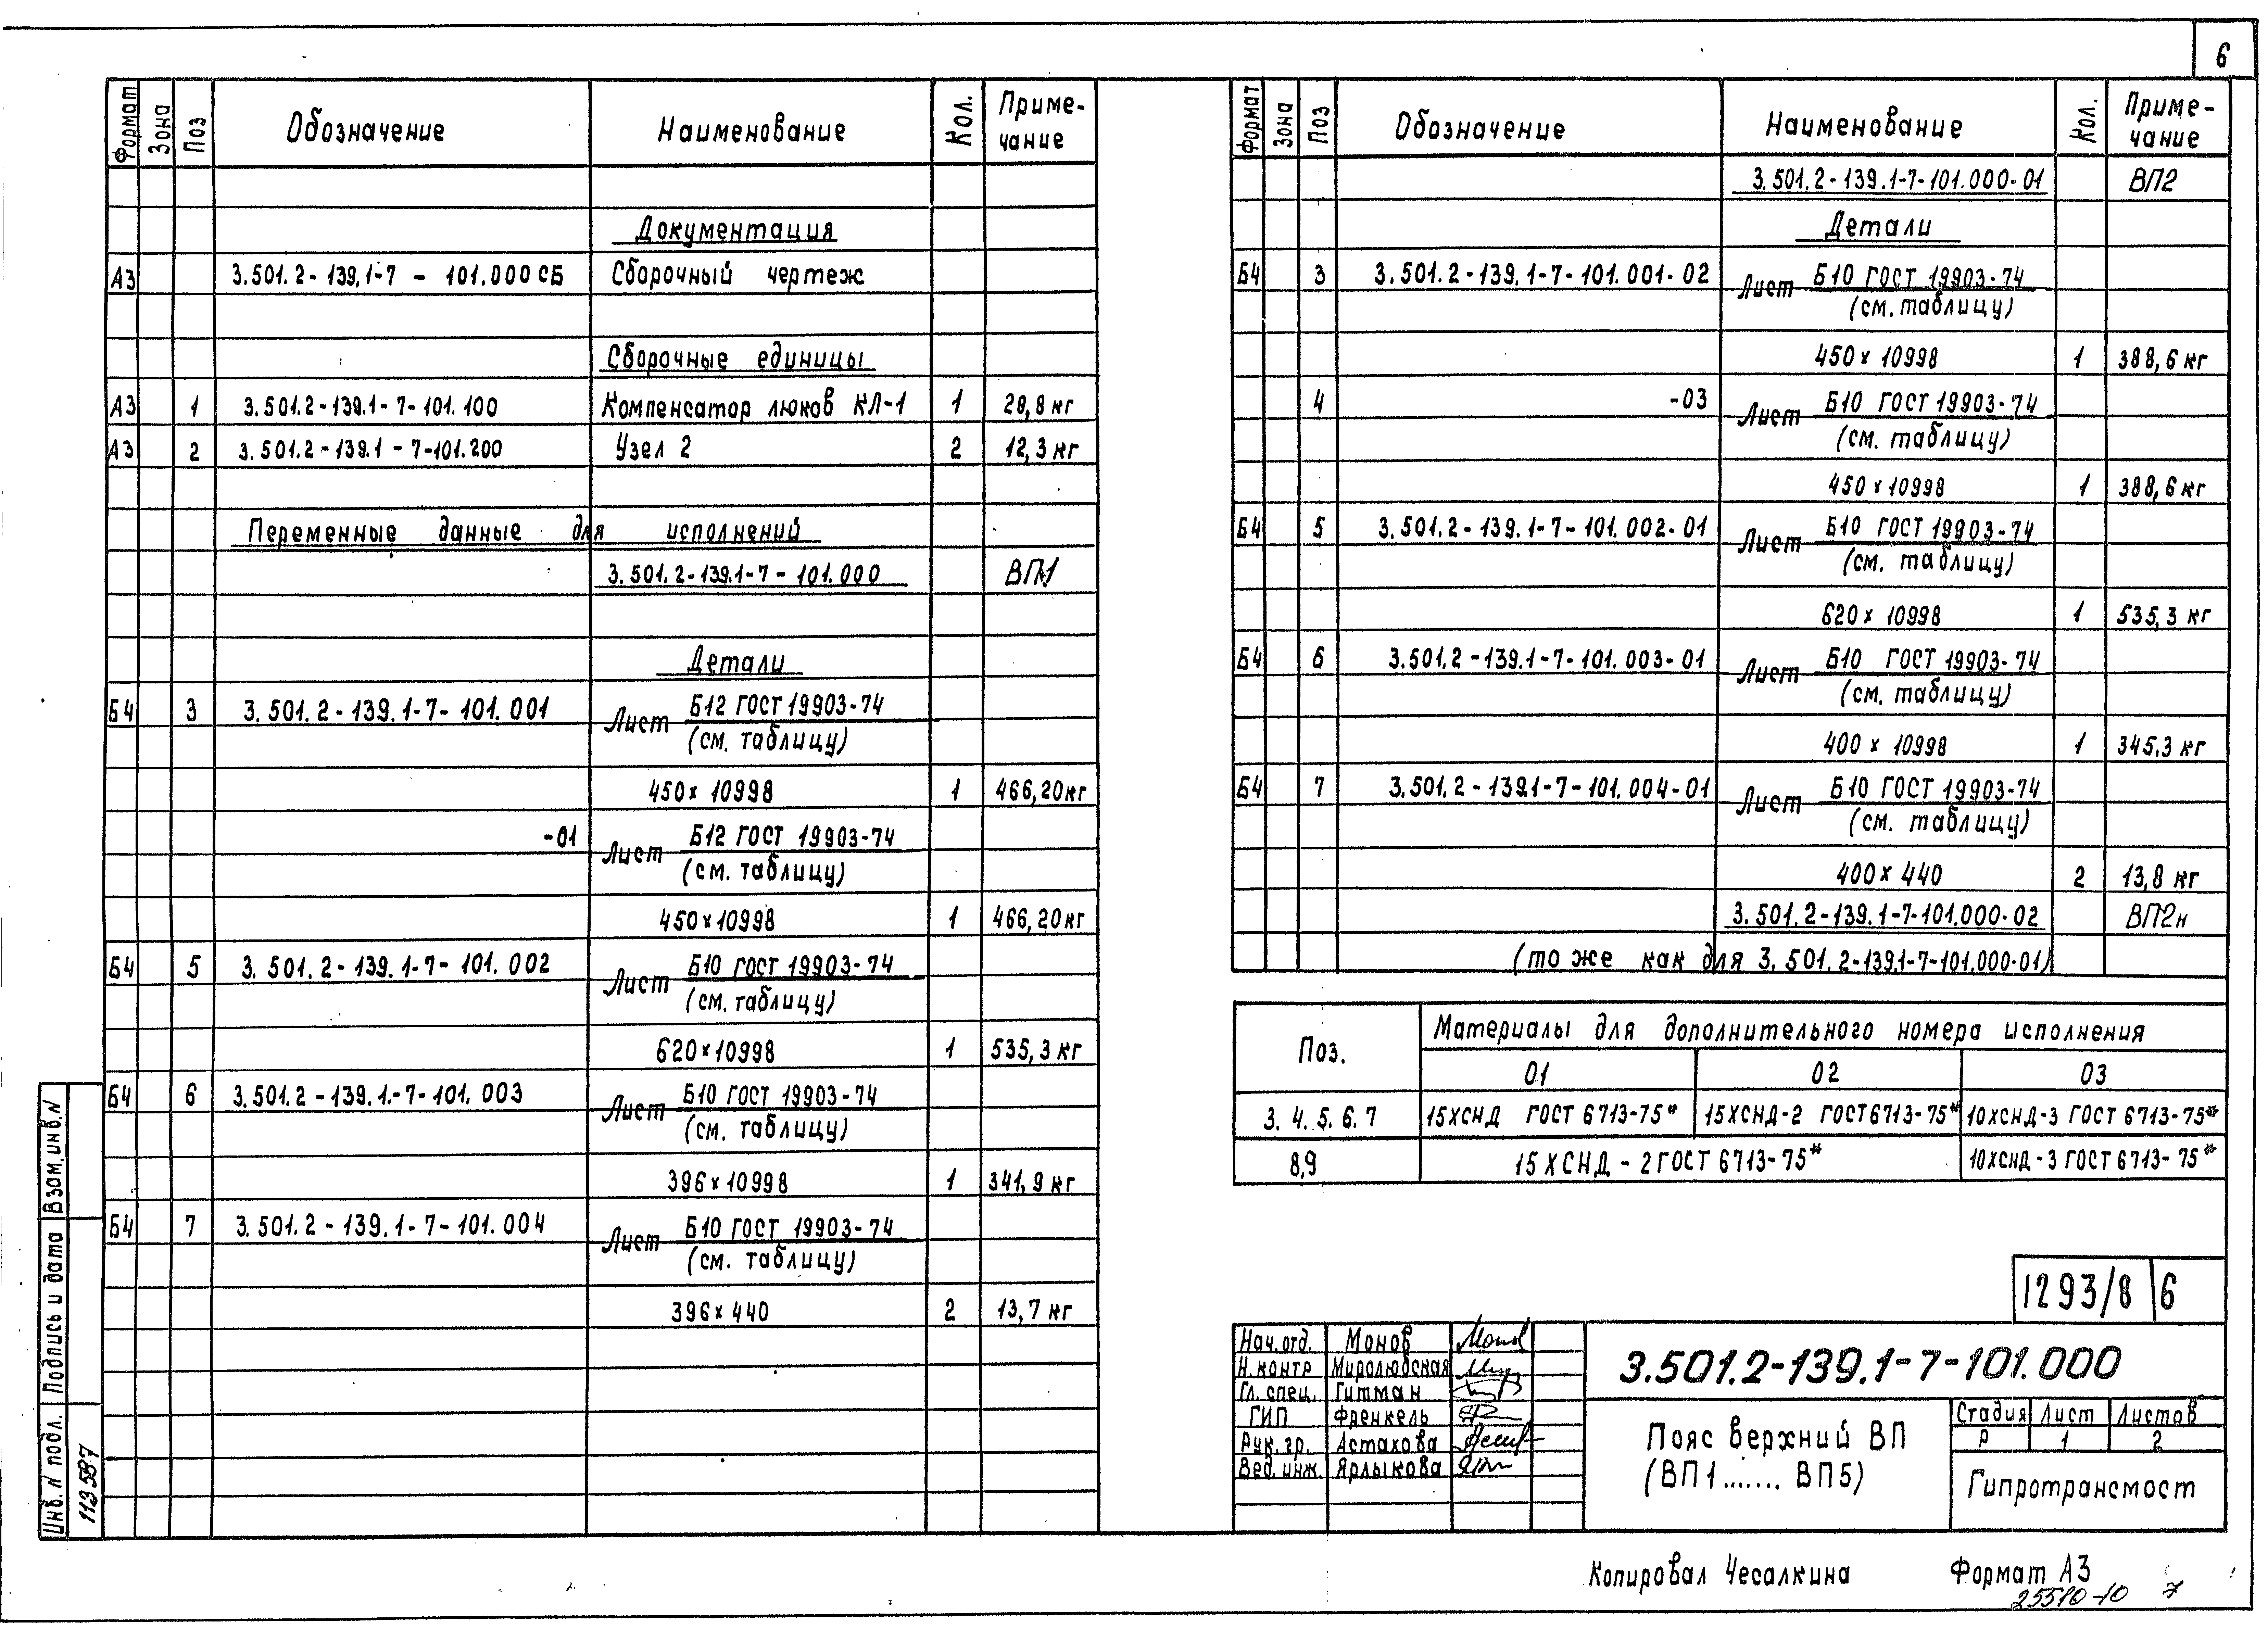 6
Формат Зона Поз Обозначение Наименование Кол. Приме-
чание
Документация
А3 3.501.2-139.1-7-101.000 СБ Сборочный чертеж
Сборочные единицы
А3 1 3.501.2-139.1-7-101.100 Компенсатор люков КЛ-1 1 28,8 кг
А3 2 3.501.2-139.1-7-101.200 Узел 2 2 12,3 кг
Переменные данные для исполнений
3.501.2-139.1-7-101.000 ВП1
Детали
Б4 3 3.501.2-139.1-7-101.001 Лист Б12 ГОСТ 19903-74
(см. таблицу)
450х10998 1 466,20кг
-01 Лист Б12 ГОСТ 19903-74
(см. таблицу)
450х10998 1 466,20кг
Б4 5 3.501.2-139.1-7-101.002 Лист Б10 ГОСТ 19903-74
(см. таблицу)
620х10998 1 535,3 кг
Б4 6 3.501.2-139.1.-7-101.003 Лист Б10 ГОСТ 19903-74
(см. таблицу)
396х10998 1 341,9 кг
Б4 7 3.501.2-139.1-7-101.004 Лист Б10 ГОСТ 19903-74
(см. таблицу)
396х440 2 13,7 кг
Формат Зона Поз Обозначение Наименование Кол. Приме-
чание
3.501.2-139.1-7-101.000-01 ВП2
Детали
Б4 3 3.501.2-139.1-7-101.001-02 Лист Б10 ГОСТ 19903-74
(см. таблицу)
450х10998 1 388,6 кг
4 -03 Лист Б10 ГОСТ 19903-74
(см. таблицу)
450х10998 1 388,6 кг
Б4 5 3.501.2-139.1-7-101.002-01 Лист Б10 ГОСТ 19903-74
(см. таблицу)
620х10998 1 535,3 кг
Б4 6 3.501.2-139.1-7-101.003-01 Лист Б10 ГОСТ 19903-74
(см. таблицу)
400х10998 1 345.3 кг
Б4 7 3.501.2-139.1-7-101.004-01 Лист Б10 ГОСТ 19903-74
(см. таблицу)
400х440 2 13,8 кг
3.501.2-139.1-7-101.000-02 ВП2н
(то же как для 3.501.2-139.1-7-101.000-01)
Поз. Материалы для дополнительного номера исполнения
01 02 03
3. 4. 5. 6. 7 15ХСНД ГОСТ 6713-75* 15ХСНД-2 ГОСТ 6713-75* 10ХСНД-3 ГОСТ 6713-75*
8,9 15ХСНД-2 ГОСТ 6713-75* 10ХСНД-3 ГОСТ 6713-75*
1293/8 6
Нач. отд. Монов
Н. контр Миролюбская
Гл. спец. Гитман
ГИП Френкель
Рук. гр. Астахова
Вед. инж. Ярлыкова
3.501.2-139.1-7-101.000
Пояс верхний ВП
(ВП1....... ВП5)
Стадия Лист Листов
Р 1 2
Гипротрансмост
Инв. N подл. Подпись и дата Взам. инв. N
113587
Копировал Чесалкина Формат А3
25510-10 7